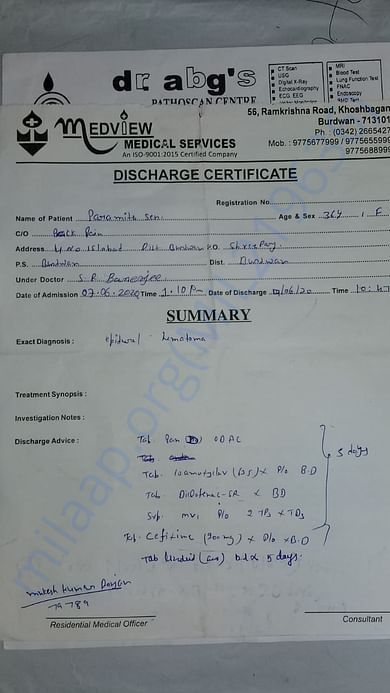 dr. abg's
PATHOSCAN CENTRE
CT Scan
USG
Digital X-Ray
Echocardiography
ECG, EEG
MRI
Blood Test
Lung Function Test
FNAC
Endoscopy
MEDVIEW
MEDICAL SERVICES
An ISO-9001:2015 Certified Company
56, Ramkrishna Road, Khoshbagan
Burdwan - 713101
Ph : (0342) 2665427
Mob. : 9775677999 / 9775655999
9775688999
DISCHARGE CERTIFICATE
Registration No.
Name of Patient Paramita Sen. Age & Sex 36y , F
C/O Back Pain
Address 4 No Islabad Dist Burdwan P.O. 
P.S. Burdwan Dist. Burdwan
Under Doctor S. R Banerjee
Date of Admission 07.06.2020 Time 1.10 Pm Date of Discharge /06/20 Time 10:
SUMMARY
Exact Diagnosis : epidural hematoma
Treatment Synopsis :
Investigation Notes :
Discharge Advice : Tab. Pan D OD AC
Tab
Tab. (625) x P/o B.D
5 days
Tab. Diclofenac-SR x BD
Syp. mvi P/o 2 TPs x TDS
Tab. Cefixime (200mg) x P/o x B.D
Tab (600) b.d x 5 days.
milaap.org
Mukesh Kumar Ranjan
79789
Residential Medical Officer
Consultant